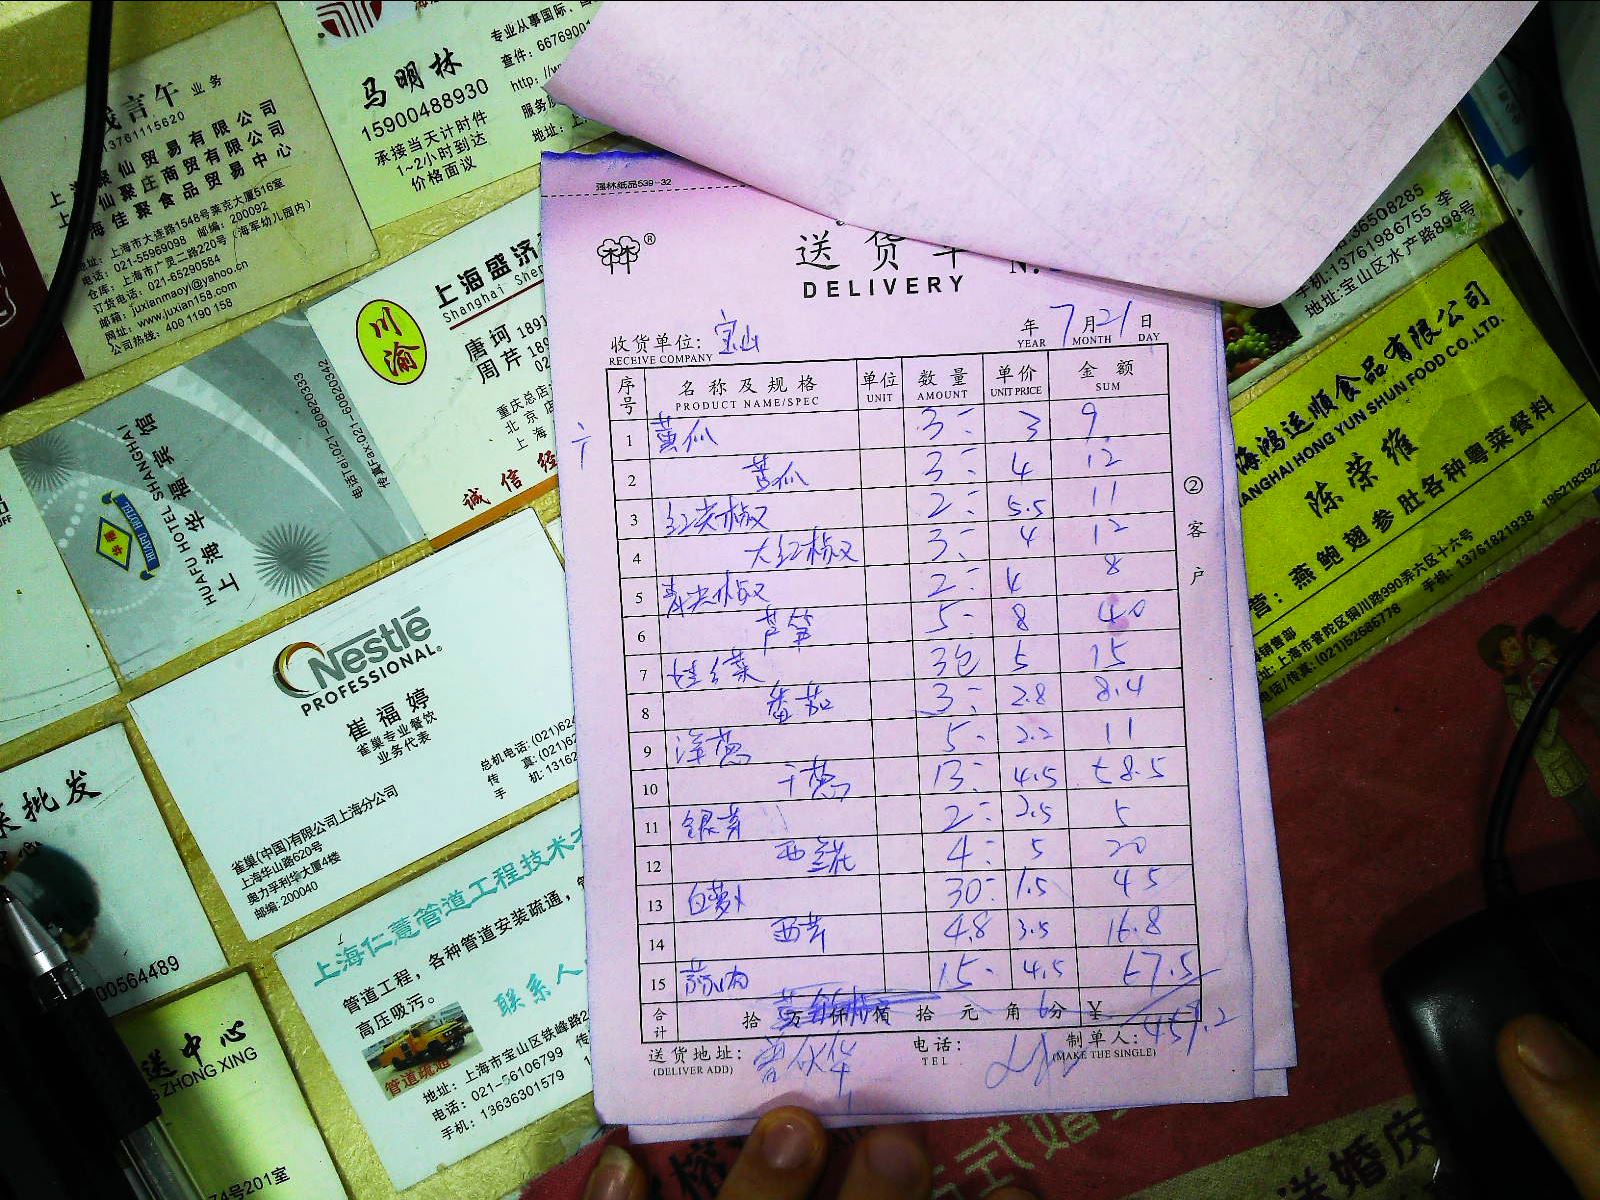 强林纸品539-32
®
送货单
DELIVERY
收货单位: 宝山
RECEIVE COMPANY
年 7月21日
YEAR MONTH DAY
序号 名称及规格 单位 数量 单价 金额
PRODUCT NAME/SPEC UNIT AMOUNT UNIT PRICE SUM
1 黄瓜 3 3 9
2 苦瓜 3 4 12
3 红尖椒 2 5.5 11
4 大红椒 3 4 12
5 青尖椒 2 4 8
6 芦笋 5 8 40
7 娃娃菜 3包 5 15
8 番茄 3 2.8 8.4
9 洋葱 5 2.2 11
10 干葱 13 4.5 58.5
11 银芽 2 2.5 5
12 西兰花 4 5 20
13 白萝卜 30 1.5 45
14 西芹 4.8 3.5 16.8
15 蒜肉 15 4.5 67.5
合计 拾 万 仟 佰 拾 元 角 分 ¥
送货地址:
(DELIVER ADD)
电话:
TEL
制单人:
(MAKE THE SINGLE)
②客户
言午 业务
13761115620
聚仙贸易有限公司
仙聚庄商贸有限公司
海佳聚食品贸易中心
地址: 上海市大连路1548号莱克大厦516室
电话: 021-55969098 邮编: 200092
仓库: 上海市广灵二路220号 (海军幼儿园内)
订货电话: 021-65290584
邮箱: juxianmaoyi@yahoo.cn
网址: www.juxian158.com
公司热线: 400 1190 158
马明林
15900488930
承接当天计时件
1~2小时到达
价格面议
专业从事国际、
查件: 6676900
http://w
服务
地址:
川渝
上海盛济
Shanghai Shen
唐珂 1891
周芹 189
02
重庆总店
北京店
上海
诚信经
HUAFU HOTEL
HUAFU HOTEL SHANGHAI
上海华福宾馆
电话Tel:021-60820333
传真Fax:021-60820342
Nestlé
PROFESSIONAL®
崔福婷
雀巢专业餐饮
业务代表
雀巢(中国)有限公司上海分公司
上海华山路620号
奥力孚利华大厦4楼
邮编: 200040
总机电话: (021)624
传 真: (021)62
手 机: 13162
菜批发
00564489
上海仁薏管道工程技术
管道工程,各种管道安装疏通,
高压吸污。
联系人
管道疏通
地址: 上海市宝山区铁峰路2
电话: 021-56106799 传
手机: 13636301579
送中心
ZHONG XING
74号201室
36508285
手机:13761986755 李
地址:宝山区水产路898号
海鸿运顺食品有限公司
ANGHAI HONG YUN SHUN FOOD CO.,LTD.
陈荣雄
营: 燕鲍翅参肚各种粤菜餐料
销售部
址: 上海市普陀区铜川路990弄六区十六号
电话/传真: (021)52686778 手机: 13761821938 1862183922
式婚
送婚庆